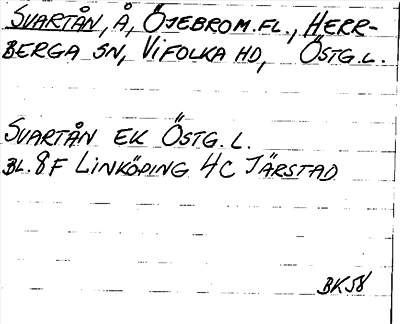 SVARTÅN, Å, ÖJEBROM.FL., HERR-
BERGA SN, VIFOLKA HD, ÖSTG.L.
SVARTÅN EK ÖSTG.L.
BL.8F LINKÖPING 4C JÄRSTAD
BK58